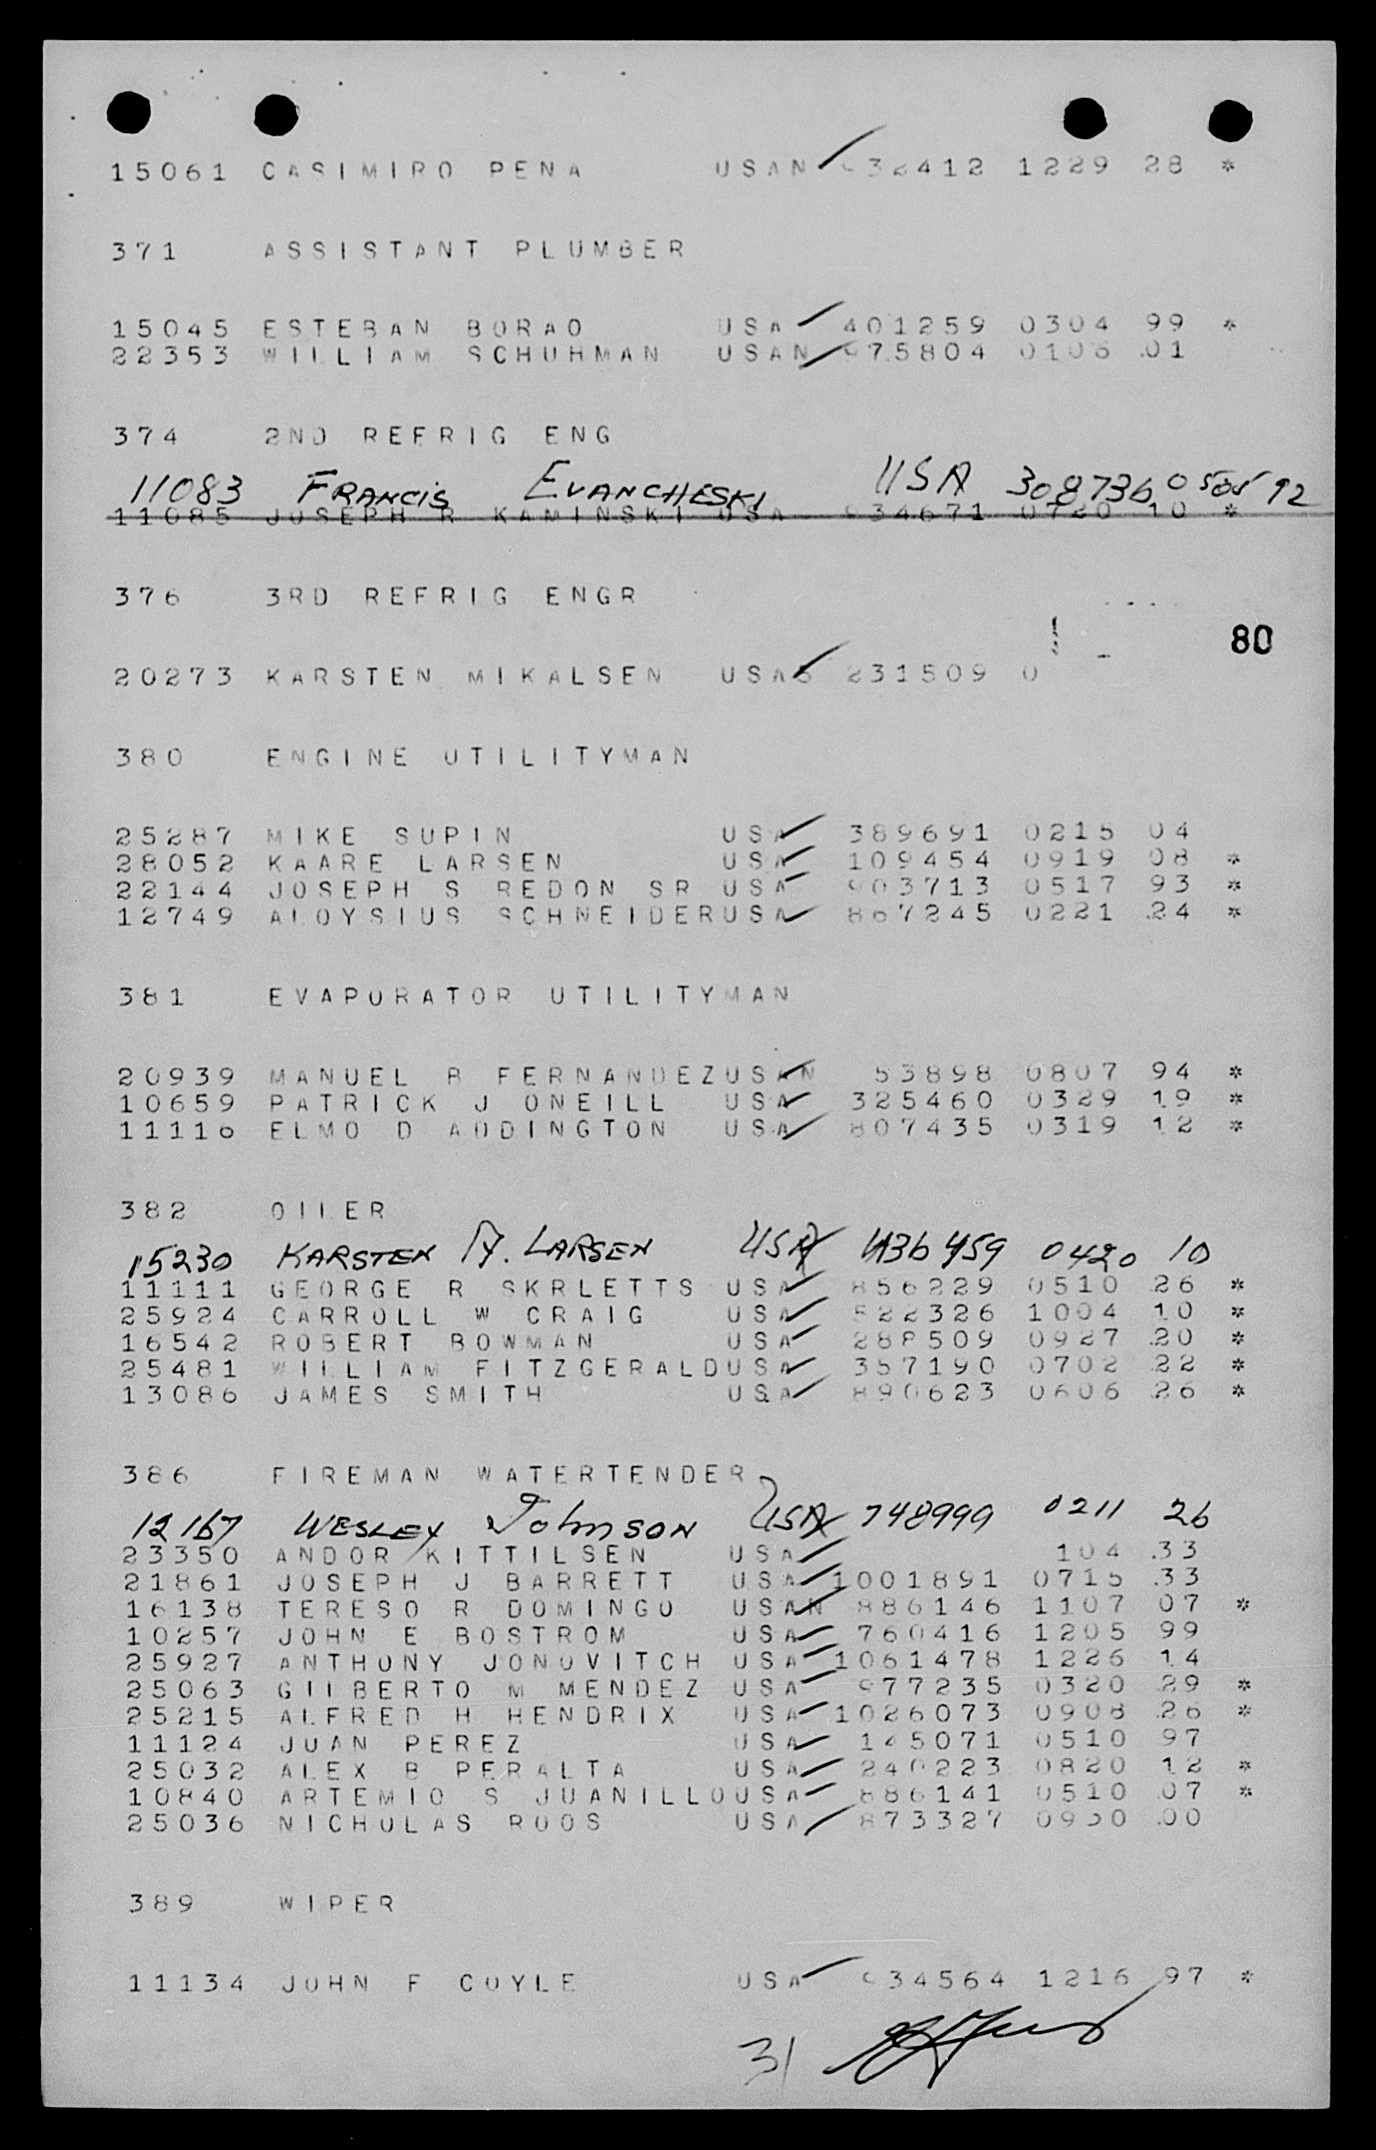 15061 CASIMIRO PENA USAN 932412 1229 28 *
371 ASSISTANT PLUMBER
15045 ESTEBAN BORAO USA 401259 0304 99 *
22353 WILLIAM SCHUHMAN USAN 975804 0106 01
374 2ND REFRIG ENG
11083 FRANCIS EVANCHESKI USA 308736 0505 92
11085 JOSEPH R KAMINSKI USA 934671 0720 10 *
376 3RD REFRIG ENGR
80
20273 KARSTEN MIKALSEN 231509 0
380 ENGINE UTILITYMAN
25287 MIKE SUPIN USA 389691 0215 04
28052 KAARE LARSEN USA 109454 0919 08 *
22144 JOSEPH S REDON SR USA 903713 0517 93 *
12749 ALOYSIUS SCHNEIDERUSA 867245 0221 24 *
381 EVAPORATOR UTILITYMAN
20939 MANUEL B FERNANDEZUSAN 53898 0807 94 *
10659 PATRICK J ONEILL USA 325460 0329 19 *
11116 ELMO D ADDINGTON USA 807435 0319 12 *
382 OILER
15230 KARSTEN A. LARSEN USA 436459 0420 10
11111 GEORGE R SKRLETTS USA 856229 0510 26 *
25924 CARROLL W CRAIG USA 522326 1004 10 *
16542 ROBERT BOWMAN USA 288509 0927 20 *
25481 WILLIAM FITZGERALDUSA 357190 0702 22 *
13086 JAMES SMITH USA 890623 0606 26 *
386 FIREMAN WATERTENDER
12167 WESLEY JOHNSON USA 748999 0211 26
23350 ANDOR KITTILSEN USA 104 33
21861 JOSEPH J BARRETT USA 1001891 0715 33
16138 TERESO R DOMINGO USAN 886146 1107 07 *
10257 JOHN E BOSTROM USA 760416 1205 99
25927 ANTHONY JONOVITCH USA 1061478 1226 14
25063 GILBERTO M MENDEZ USA 977235 0320 29 *
25215 ALFRED H HENDRIX USA 1026073 0908 26 *
11124 JUAN PEREZ USA 145071 0510 97
25032 ALEX B PERALTA USA 240223 0820 12 *
10840 ARTEMIO S JUANILLOUSA 886141 0510 07 *
25036 NICHOLAS ROOS USA 873327 0930 00
389 WIPER
11134 JOHN F COYLE USA 934564 1216 97 *
31